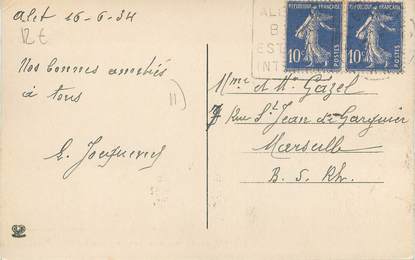 Alet 16-6-34
12€
Nos bonnes amitiés
à tous
11)
Mme & Mr Gazel
7 Rue St Jean de Garguier
Marseille
B. S. Rh.
AL
B
EST
INT
REPUBLIQUE FRANÇAISE
10c
POSTES
REPUBLIQUE FRANÇAISE
10c
POSTES